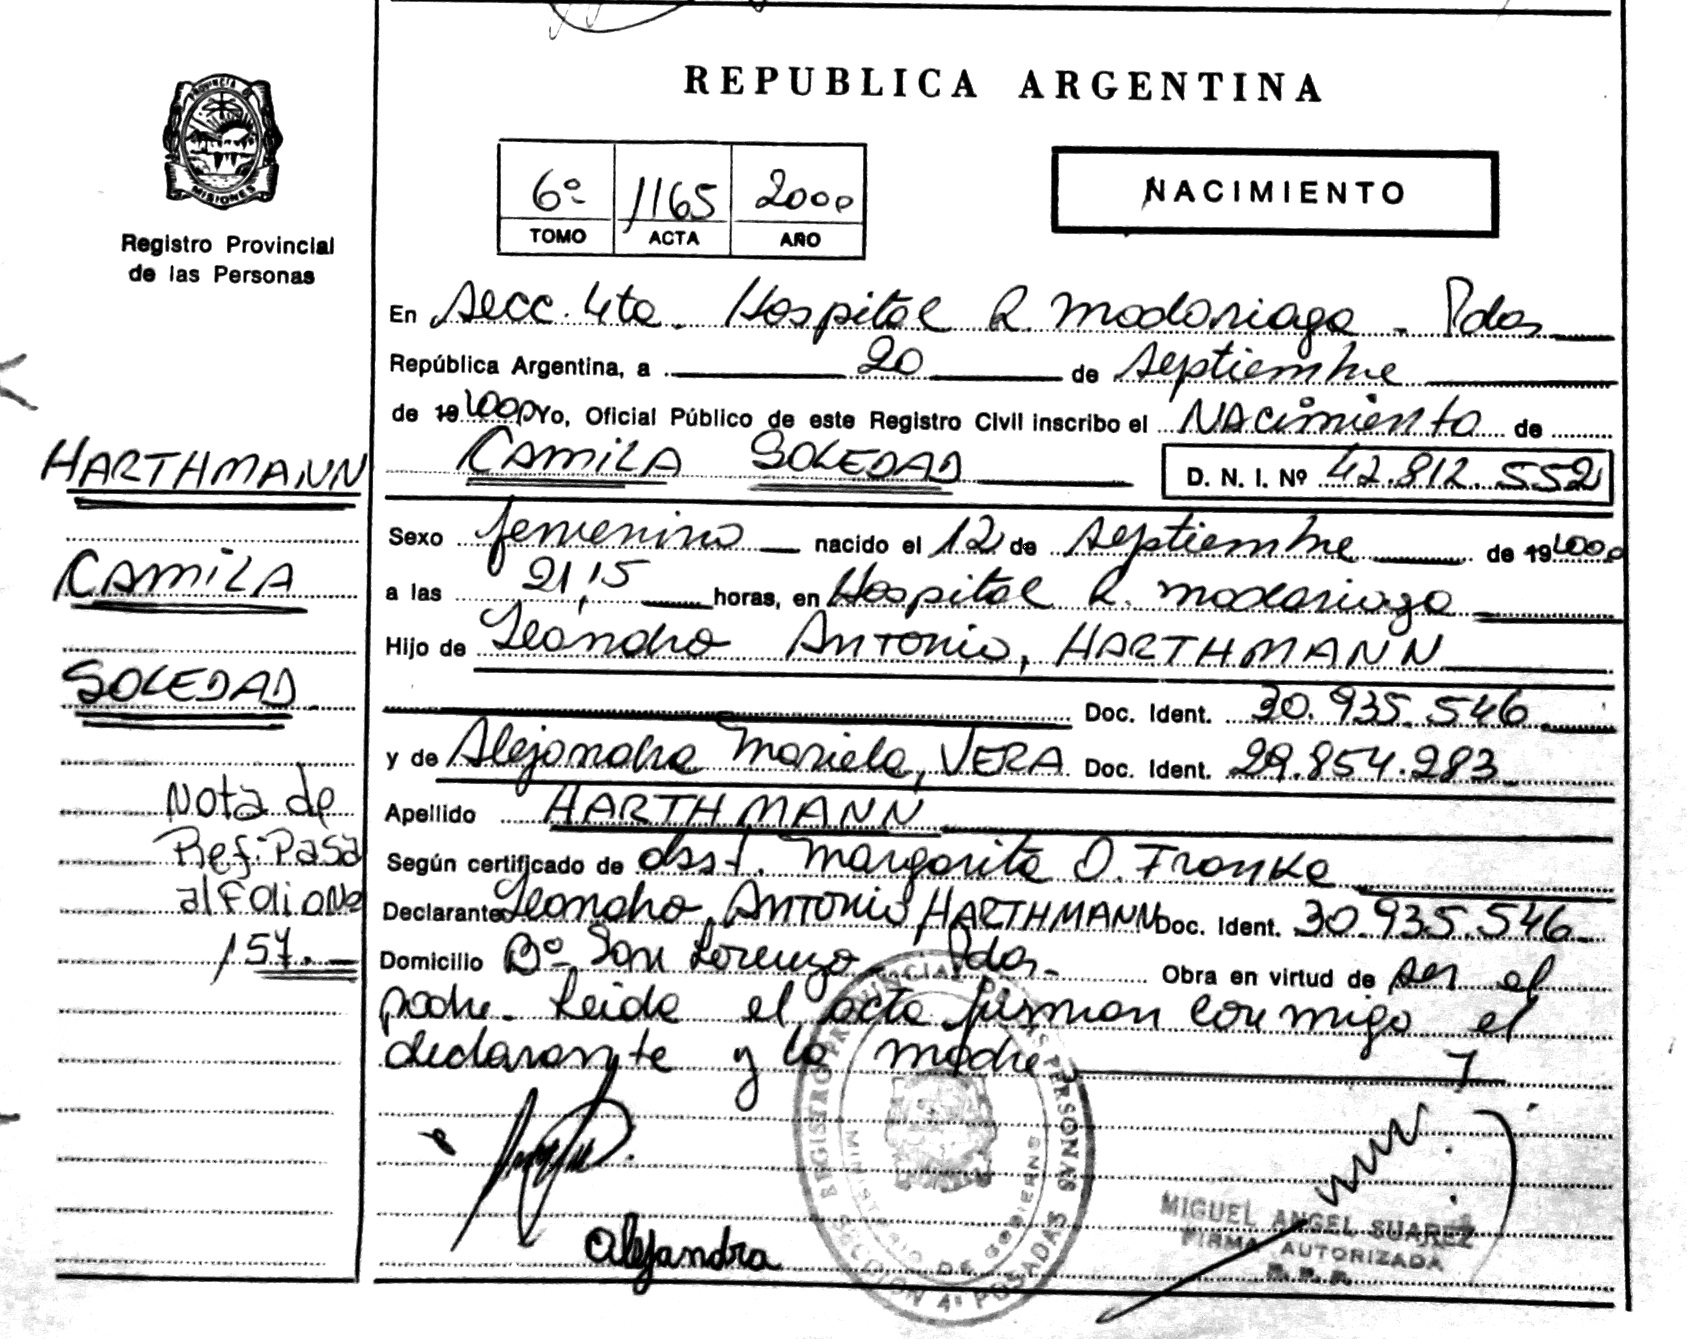 REPUBLICA ARGENTINA
PROVINCIA DE
MISIONES
Registro Provincial
de las Personas
6º 1165 2000
TOMO ACTA AÑO
NACIMIENTO
En Secc. 4ta. Hospital R. Madariaga - Pdas
República Argentina, a 20 de Septiembre
de 19 2000 Yo, Oficial Público de este Registro Civil inscribo el Nacimiento de
CAMILA SOLEDAD D. N. I. Nº 42.812.552
Sexo femenino nacido el 12 de Septiembre de 19 2000
a las 21,15 horas, en Hospital R. Madariaga
Hijo de Leandro Antonio, HARTHMANN
Doc. Ident. 30.935.546
y de Alejandra Mariela, VERA Doc. Ident. 29.854.283
Apellido HARTHMANN
Según certificado de obst. Margarita O. Franke
Declarante Leandro Antonio, HARTHMANN Doc. Ident. 30.935.546
Domicilio Bº San Lorenzo - Pdas. Obra en virtud de ser el
padre. Leida el acta firman conmigo el
declarante y la madre
HARTHMANN
CAMILA
SOLEDAD
Nota de
Ref: Pasa
al Folio Nº
157.
Alejandra
REGISTRO PROVINCIAL DE LAS PERSONAS
MINISTERIO DE GOBIERNO
SECCION 4ª POSADAS
MIGUEL ANGEL SUAREZ
FIRMA AUTORIZADA
R. P. P.